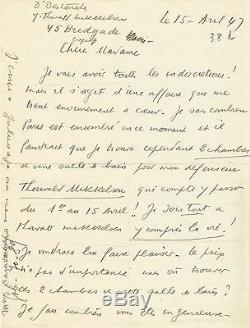 Dr Destouches
ç/ Thorvald Mikkelsen
45 Bredgade
le 15 - Avril 47
38
Chère Madame
Je vais avoir toutes les indiscrétions!
mais il s'agit d'une affaire qui me
tient énormément à coeur. Je sais combien
Paris est encombré en ce moment et il
faudrait que je trouve cependant 2 chambres
et une salle de bains pour mon défenseur
Thorvald Mikkelsen qui compte y passer
du 1er au 15 Avril! Je dois tout à
Thorvald Mikkelsen y compris la vie!
Je voudrais lui faire plaisir. le prix
n'a pas d'importance mais où trouver
ces 2 chambres et cette salle de bains?
Je sais combien vous êtes ingénieuse